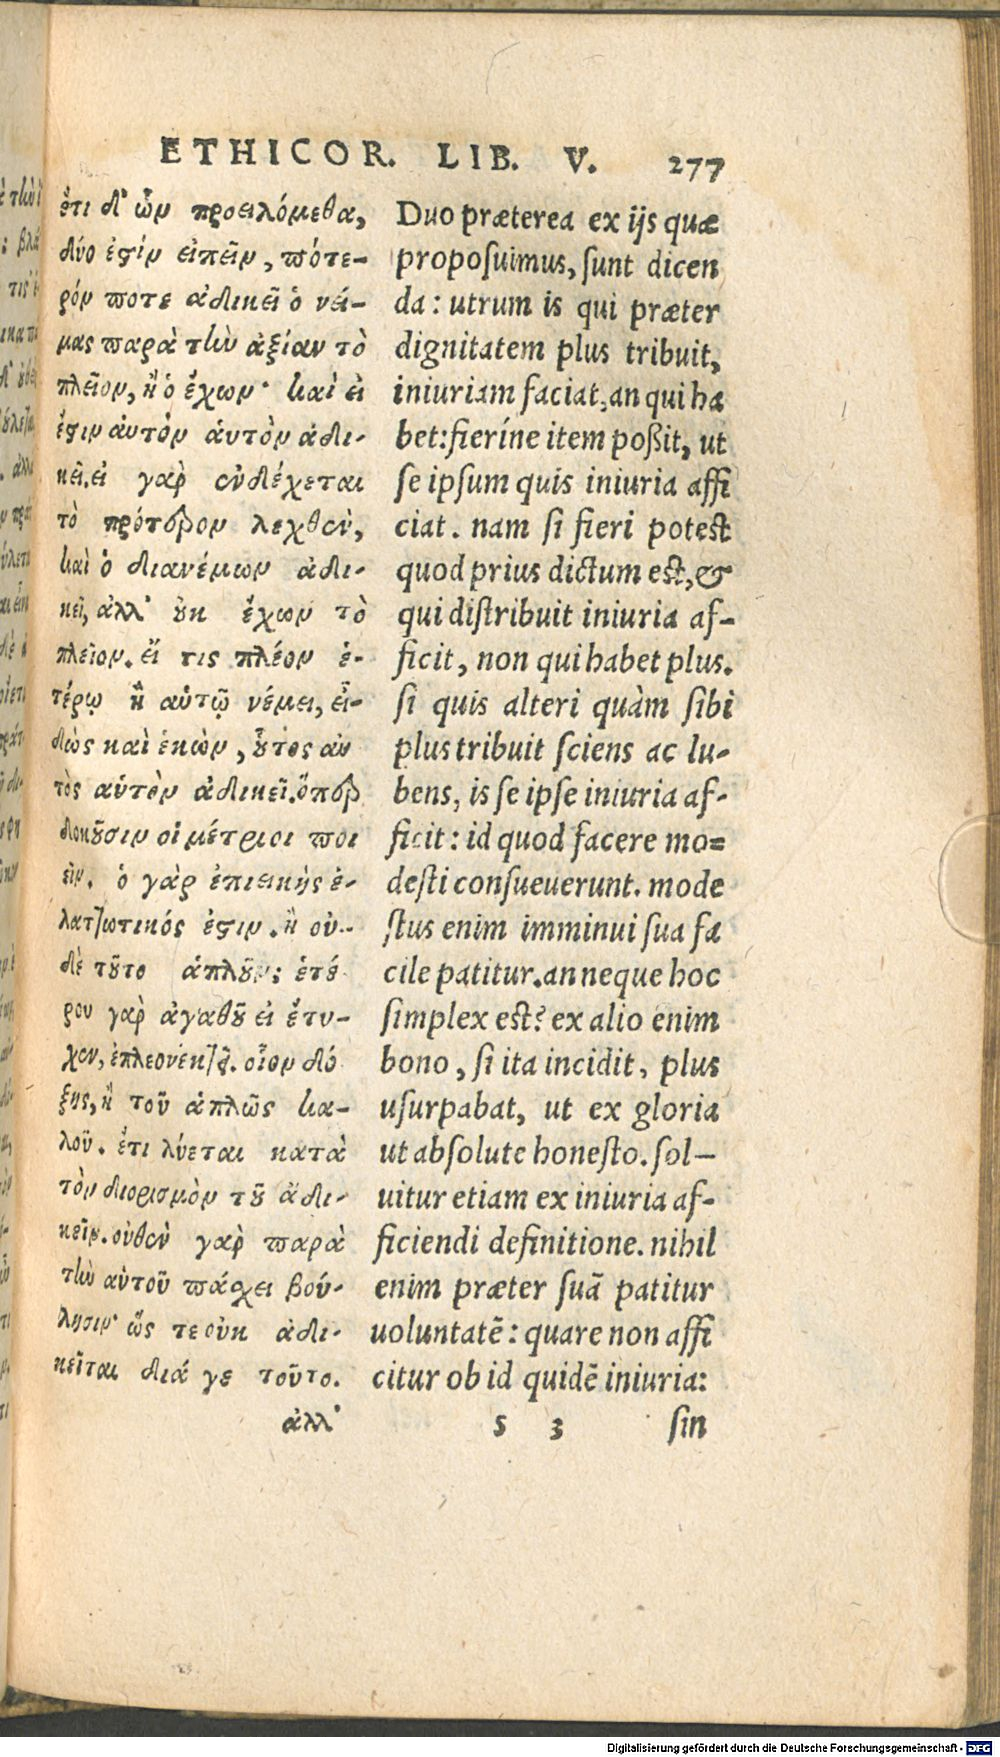 ETHICOR. LIB. V. 277
ἔτι δ' ὧν προειλόμεθα,
δύο ἐστὶν εἰπεῖν, πότε-
ρόν ποτε ἀδικεῖ ὁ νεί-
μας παρὰ τὴν ἀξίαν τὸ
πλεῖον, ἢ ὁ ἔχων· καὶ εἰ
ἔστιν αὐτὸν αὑτὸν ἀδι-
κεῖ. εἰ γὰρ ἐνδέχεται
τὸ πρότερον λεχθὲν,
καὶ ὁ διανέμων ἀδι-
κεῖ, ἀλλ' οὐκ ἔχων τὸ
πλεῖον. εἴ τις πλέον ἑ-
τέρῳ ἢ αὑτῷ νέμει, εἰ-
δὼς καὶ ἑκὼν, οὗτος αὐ
τὸς αὑτὸν ἀδικεῖ. ὅπερ
δοκοῦσιν οἱ μέτριοι ποι
εῖν. ὁ γὰρ ἐπιεικὴς ἐ-
λαττωτικός ἐστιν. ἢ οὐ-
δὲ τοῦτο ἁπλοῦν; ἑτέ
ρου γὰρ ἀγαθοῦ εἰ ἔτυ-
χεν, ἐπλεονέκτει. οἷον δό
ξης, ἢ τοῦ ἁπλῶς κα-
λοῦ. ἔτι λύεται κατὰ
τὸν διορισμὸν τοῦ ἀδι-
κεῖν. οὐθὲν γὰρ παρὰ
τὴν αὑτοῦ πάσχει βού-
λησιν· ὥς τε οὐκ ἀδι-
κεῖται διά γε τοῦτο.
ἀλλ'
Duo præterea ex ijs quæ
proposuimus, sunt dicen
da: utrum is qui præter
dignitatem plus tribuit,
iniuriam faciat, an qui ha
bet: fieríne item poßit, ut
se ipsum quis iniuria affi
ciat. nam si fieri potest
quod prius dictum est, &
qui distribuit iniuria af-
ficit, non qui habet plus.
si quis alteri quàm sibi
plus tribuit sciens ac lu-
bens, is se ipse iniuria af-
ficit: id quod facere mo=
desti consueuerunt. mode
stus enim imminui sua fa
cile patitur. an neque hoc
simplex est? ex alio enim
bono, si ita incidit, plus
usurpabat, ut ex gloria
ut absolute honesto. sol-
uitur etiam ex iniuria af-
ficiendi definitione. nihil
enim præter suã patitur
uoluntatẽ: quare non affi
citur ob id quidẽ iniuria:
s 3 sin
Digitalisierung gefördert durch die Deutsche Forschungsgemeinschaft - DFG